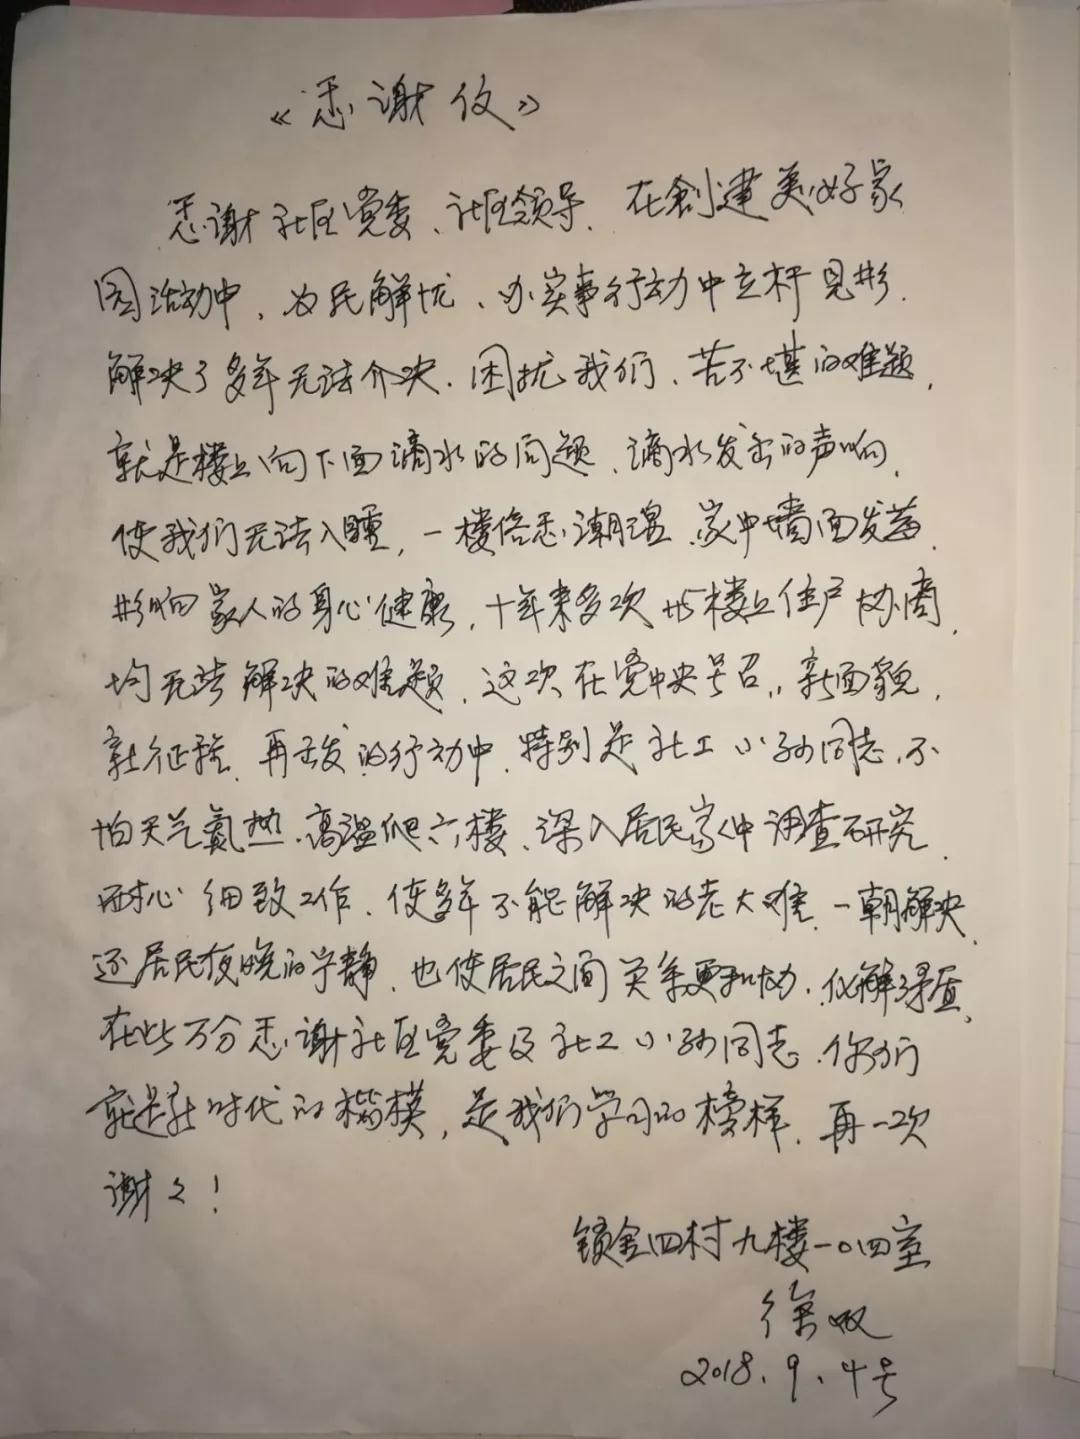 《感谢信》
感谢社区党委、社区领导、在創建美好家
园活动中，为民解忧、办实事行动中立杆见影.
解决了多年无法介决.困扰我们、苦不堪的难题，
就是楼上向下面滴水的问题、滴水发出的声响，
使我们无法入睡，一楼倍感潮湿、家中墙面发莓.
影响家人的身心健康，十年来多次与楼上住户协商，
均无法解决的难题，这次在党中央号召，新面貌，
新征程、再出发的行动中，特别是社工小孙同志，不
怕天气炎热、高温爬六楼、深入居民家中调查研究
耐心细致工作、使多年不能解决的老大难、一朝解决，
还居民夜晚的宁静，也使居民之间关系更和协，化解矛盾，
在此万分感谢社区党委及社工小孙同志，你们
就是新时代的楷模，是我们学习的榜样，再一次
谢々！
锁金四村九楼一〇四室
徐
2018.9.4号